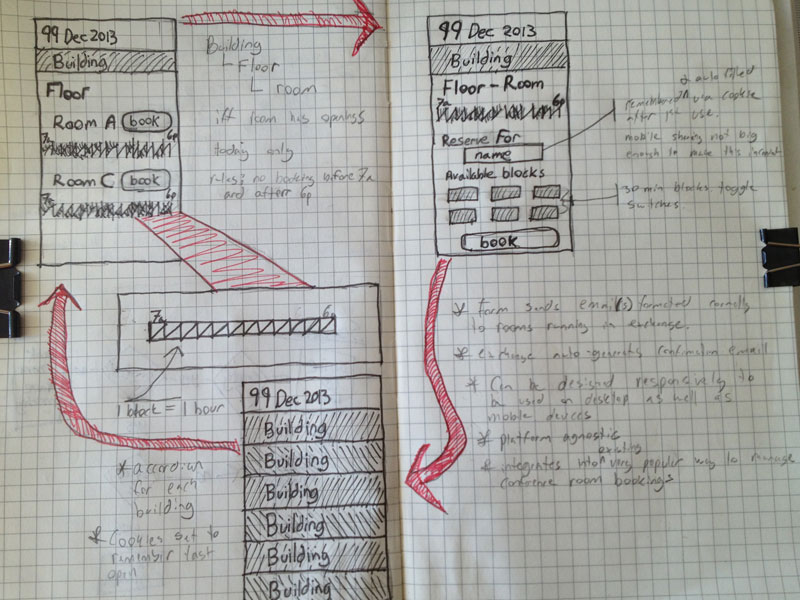 99 Dec 2013
Building
Floor
Room A book
7a 6p
Room C book
7a 6p
Building
Floor
room
iff room has openness
today only
rules: no booking before 7a
and afterr 6p
7a 6p
1 block = 1 hour
99 Dec 2013
Building
Building
Building
Building
Building
Building
* accordian
for each
building
* Cookies set to
remember last
open
99 Dec 2013
Building
Floor - Room
7a 6p
Reserve For
name
Available blocks
book
auto filled
remembered via cookie
after 1st use.
mobile sharing not big
enough to make this
30 min blocks toggle
switches
* form sends email(s) formatted correctly
to rooms running in exchange.
* exchange auto-generates confirmation email
* Can be designed responsively to
be used on desktop as well as
mobile devices
* platform agnostic
existing
* integrates into very popular way to manage
conference room bookings